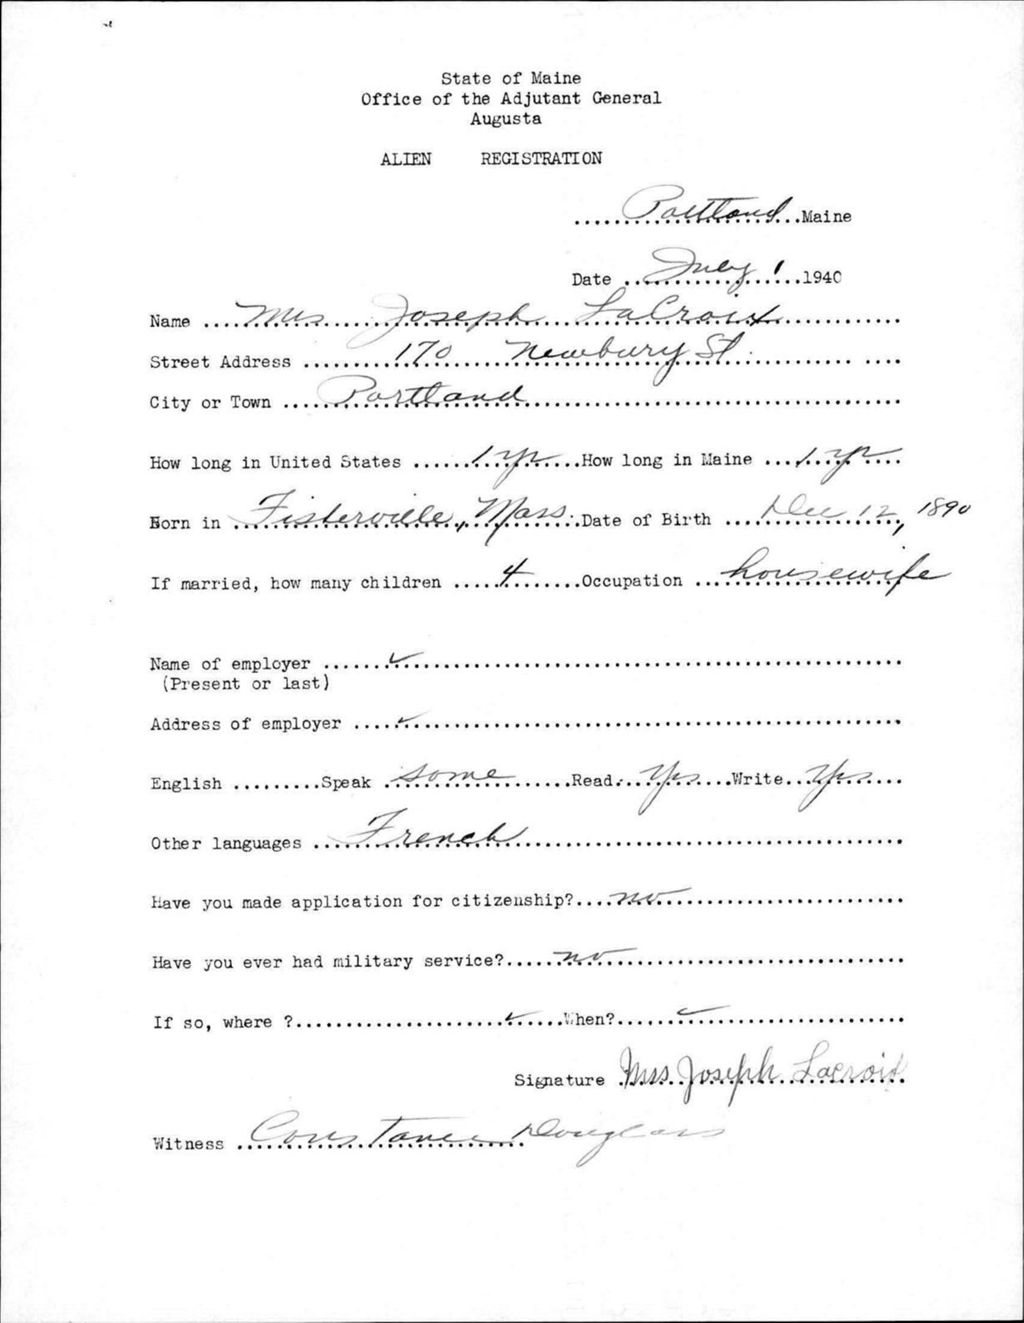 State of Maine
Office of the Adjutant General
Augusta
ALIEN REGISTRATION
......Portland......Maine
Date ......July 1......1940
Name ......Mrs Joseph LaCroix......
Street Address ......170 Newbury St.......
City or Town ......Portland......
How long in United States ......1 yr......How long in Maine ......1 yr......
Born in ......Fisherville, Mass......Date of Birth ......Dec 12, 1890
If married, how many children ......4......Occupation ......housewife
Name of employer ......✓......
(Present or last)
Address of employer ......✓......
English .........Speak ......some......Read......Yes......Write......Yes......
Other languages ......French......
Have you made application for citizenship?......no......
Have you ever had military service?......no......
If so, where ?......✓......When?......✓......
Signature ......Mrs. Joseph Lacroix......
Witness ......Constance Douglass